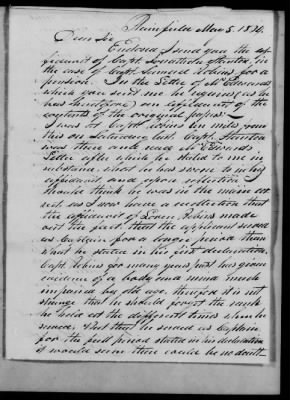 Plainfield Nov 5. 1834.
Dear Sir
Enclosed I send you the af-
fidavit of Capt. Jonathan Stanton, in
the case of Capt. Samuel Robins for a
pension. In the Letter of Mr Edwards
which you sent me he requires (as he
has heretofore) an affidavit of the
contents of the original papers
I was at Capt. Robins ten miles from
this on Saturday last Capt. Stanton
was there and read Mr Edwards
Letter after which he stated to me in
substance, what he has sworn to in his
affidavit and upon reflection I
should think he was in the main cor-
rect. as I now have a recollection that
the affidavit of Robins made
out the fact, that the applicant served
as Captain for a longer period than
what he stated in his first declaration.
Capt. Robins for many years past has given
evidence of a body and mind much
impaired by old age, therefore it is not
strange that he should forget the rank
he held at the different times when he
served. But that he served as Captain
for the full period stated in his declaration
it would seem there could be no doubt